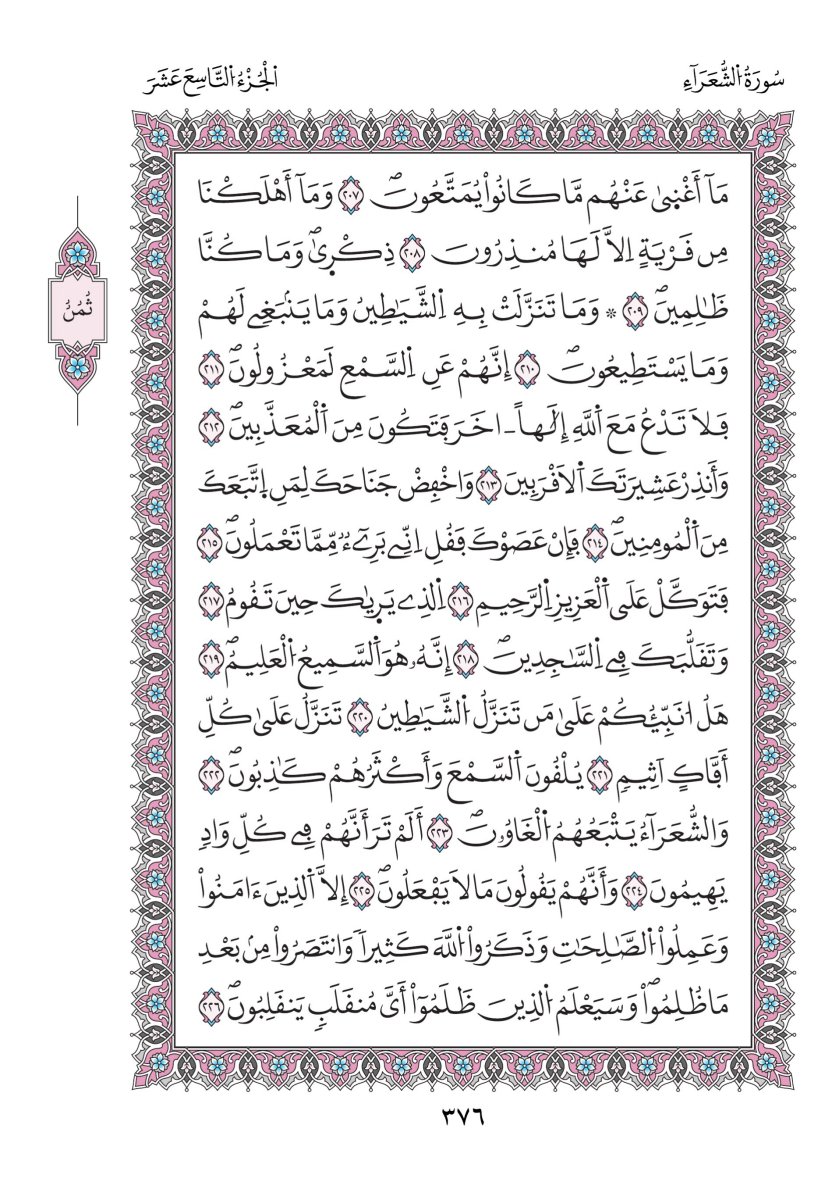 سُورَةُ اُ۬لشُّعَرَآءِ
اَ۬لْجُزْءُ اُ۬لتَّاسِعَ عَشَرَ
مَآ أَغْنِىٰ عَنْهُم مَّا كَانُواْ يُمَتَّعُونَۖ ٢٠٧ وَمَآ أَهْلَكْنَا
مِن قَرْيَةٍ اِلَّا لَهَا مُنذِرُونَ ٢٠٨ ذِكْرِىٰۖ وَمَا كُنَّا
ظَٰلِمِينَۖ ٢٠٩ ۞ وَمَا تَنَزَّلَتْ بِهِ اِ۬لشَّيَٰطِينُ وَمَا يَنۢبَغِے لَهُمْ
وَمَا يَسْتَطِيعُونَۖ ٢١٠ إِنَّهُمْ عَنِ اِ۬لسَّمْعِ لَمَعْزُولُونَۖ ٢١١
فَلَا تَدْعُ مَعَ اَ۬للَّهِ إِلَٰهاً ـ اخَرَ فَتَكُونَ مِنَ اَ۬لْمُعَذَّبِينَۖ ٢١٢
وَأَنذِرْ عَشِيرَتَكَ اَ۬لَاقْرَبِينَ ٢١٣ وَاخْفِضْ جَنَاحَكَ لِمَنِ اِ۪تَّبَعَكَ
مِنَ اَ۬لْمُومِنِينَۖ ٢١٤ فَإِنْ عَصَوْكَ فَقُلِ اِنِّے بَرِےٓءٞ مِّمَّا تَعْمَلُونَۖ ٢١٥
فَتَوَكَّلْ عَلَى اَ۬لْعَزِيزِ اِ۬لرَّحِيمِ ٢١٦ اِ۬لذِے يَر۪ىٰكَ حِينَ تَقُومُ ٢١٧
وَتَقَلُّبَكَ فِے اِ۬لسَّٰجِدِينَۖ ٢١٨ إِنَّهُۥ هُوَ اَ۬لسَّمِيعُ اُ۬لْعَلِيمُۖ ٢١٩
هَلُ ا۟نَبِّئُكُمْ عَلَىٰ مَن تَنَزَّلُ اُ۬لشَّيَٰطِينُ ٢٢٠ تَنَزَّلُ عَلَىٰ كُلِّ
أَفَّاكٍ اَثِيمٖ ٢٢١ يُلْقُونَ اَ۬لسَّمْعَ وَأَكْثَرُهُمْ كَٰذِبُونَۖ ٢٢٢
وَالشُّعَرَآءُ يَتْبَعُهُمُ اُ۬لْغَاوُۥنَۖ ٢٢٣ أَلَمْ تَرَ أَنَّهُمْ فِے كُلِّ وَادٖ
يَهِيمُونَ ٢٢٤ وَأَنَّهُمْ يَقُولُونَ مَا لَا يَفْعَلُونَۖ ٢٢٥ إِلَّا اَ۬لذِينَ ءَامَنُواْ
وَعَمِلُواْ اُ۬لصَّٰلِحَٰتِ وَذَكَرُواْ اُ۬للَّهَ كَثِيراٗ وَانتَصَرُواْ مِنۢ بَعْدِ
مَا ظُلِمُواْۖ وَسَيَعْلَمُ اُ۬لذِينَ ظَلَمُوٓاْ أَىَّ مُنقَلَبٖ يَنقَلِبُونَۖ ٢٢٦
ثُمُنُ
٣٧٦